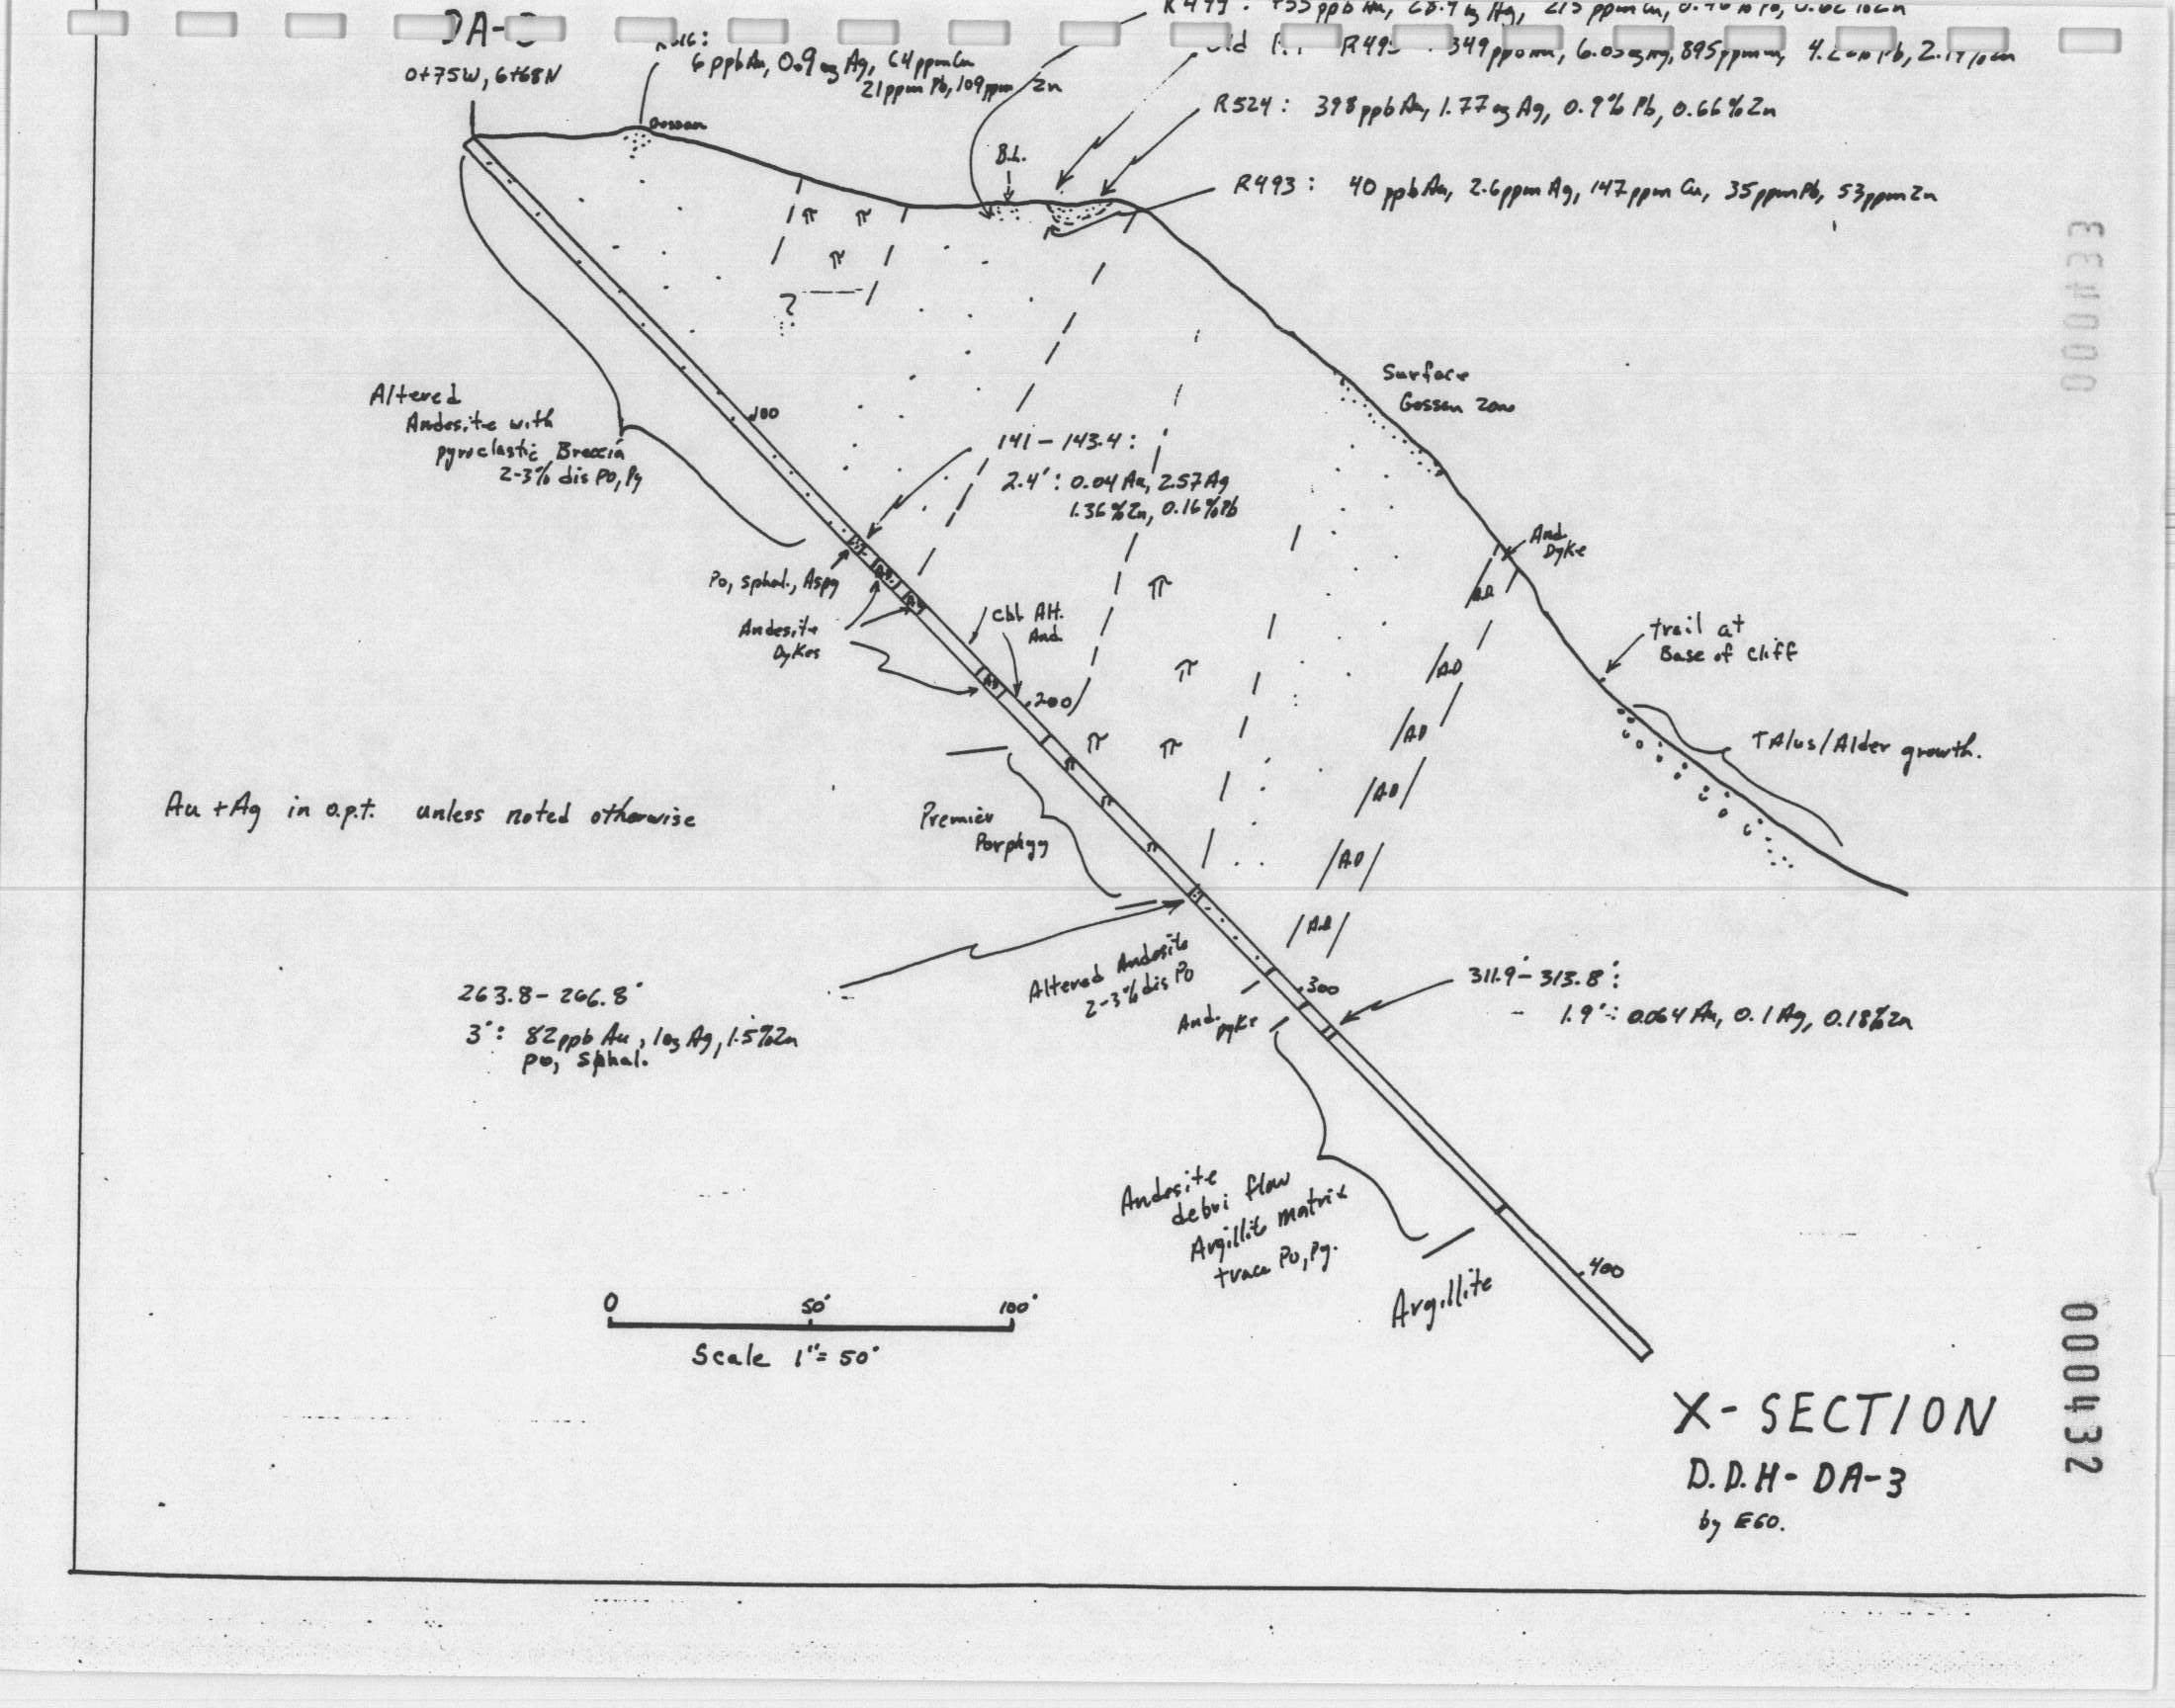 DA-
0+75W, 6+68N
6 ppb Au, 0.9 oz Ag, 64 ppm Cu
21 ppm Pb, 109 ppm Zn
Gossan
R524: 398 ppb Au, 1.77 oz Ag, 0.9% Pb, 0.66% Zn
B.L.
R493: 40 ppb Au, 2.6 ppm Ag, 147 ppm Cu, 35 ppm Pb, 53 ppm Zn
?
000433
Surface
Gossan Zone
Altered
Andesite with
pyroclastic Breccia
2-3% dis Po, Py
100
141 - 143.4:
2.4': 0.04 Au, 2.57 Ag
1.36% Zn, 0.16% Pb
And
Dyke
AD
Po, sphal., Aspy
Andesite
Dykes
Chl. Alt.
And.
trail at
Base of Cliff
AD
AD
200
AD
TAlus/Alder growth.
AD
Au + Ag in o.p.t. unless noted otherwise
Premier
Porphyy
AD
AD
Altered Andesite
2-3% dis Po
263.8 - 266.8'
3': 82 ppb Au, 1 oz Ag, 1.5% Zn
po, sphal.
300
And.
Dyke
311.9' - 313.8':
1.9': 0.064 Au, 0.1 Ag, 0.18% Zn
Andesite
debri flow
Argillite matrix
trace Po, Py.
Argillite
400
0 50' 100'
Scale 1" = 50'
X-SECTION
D.D.H - DA-3
by EGO.
000432